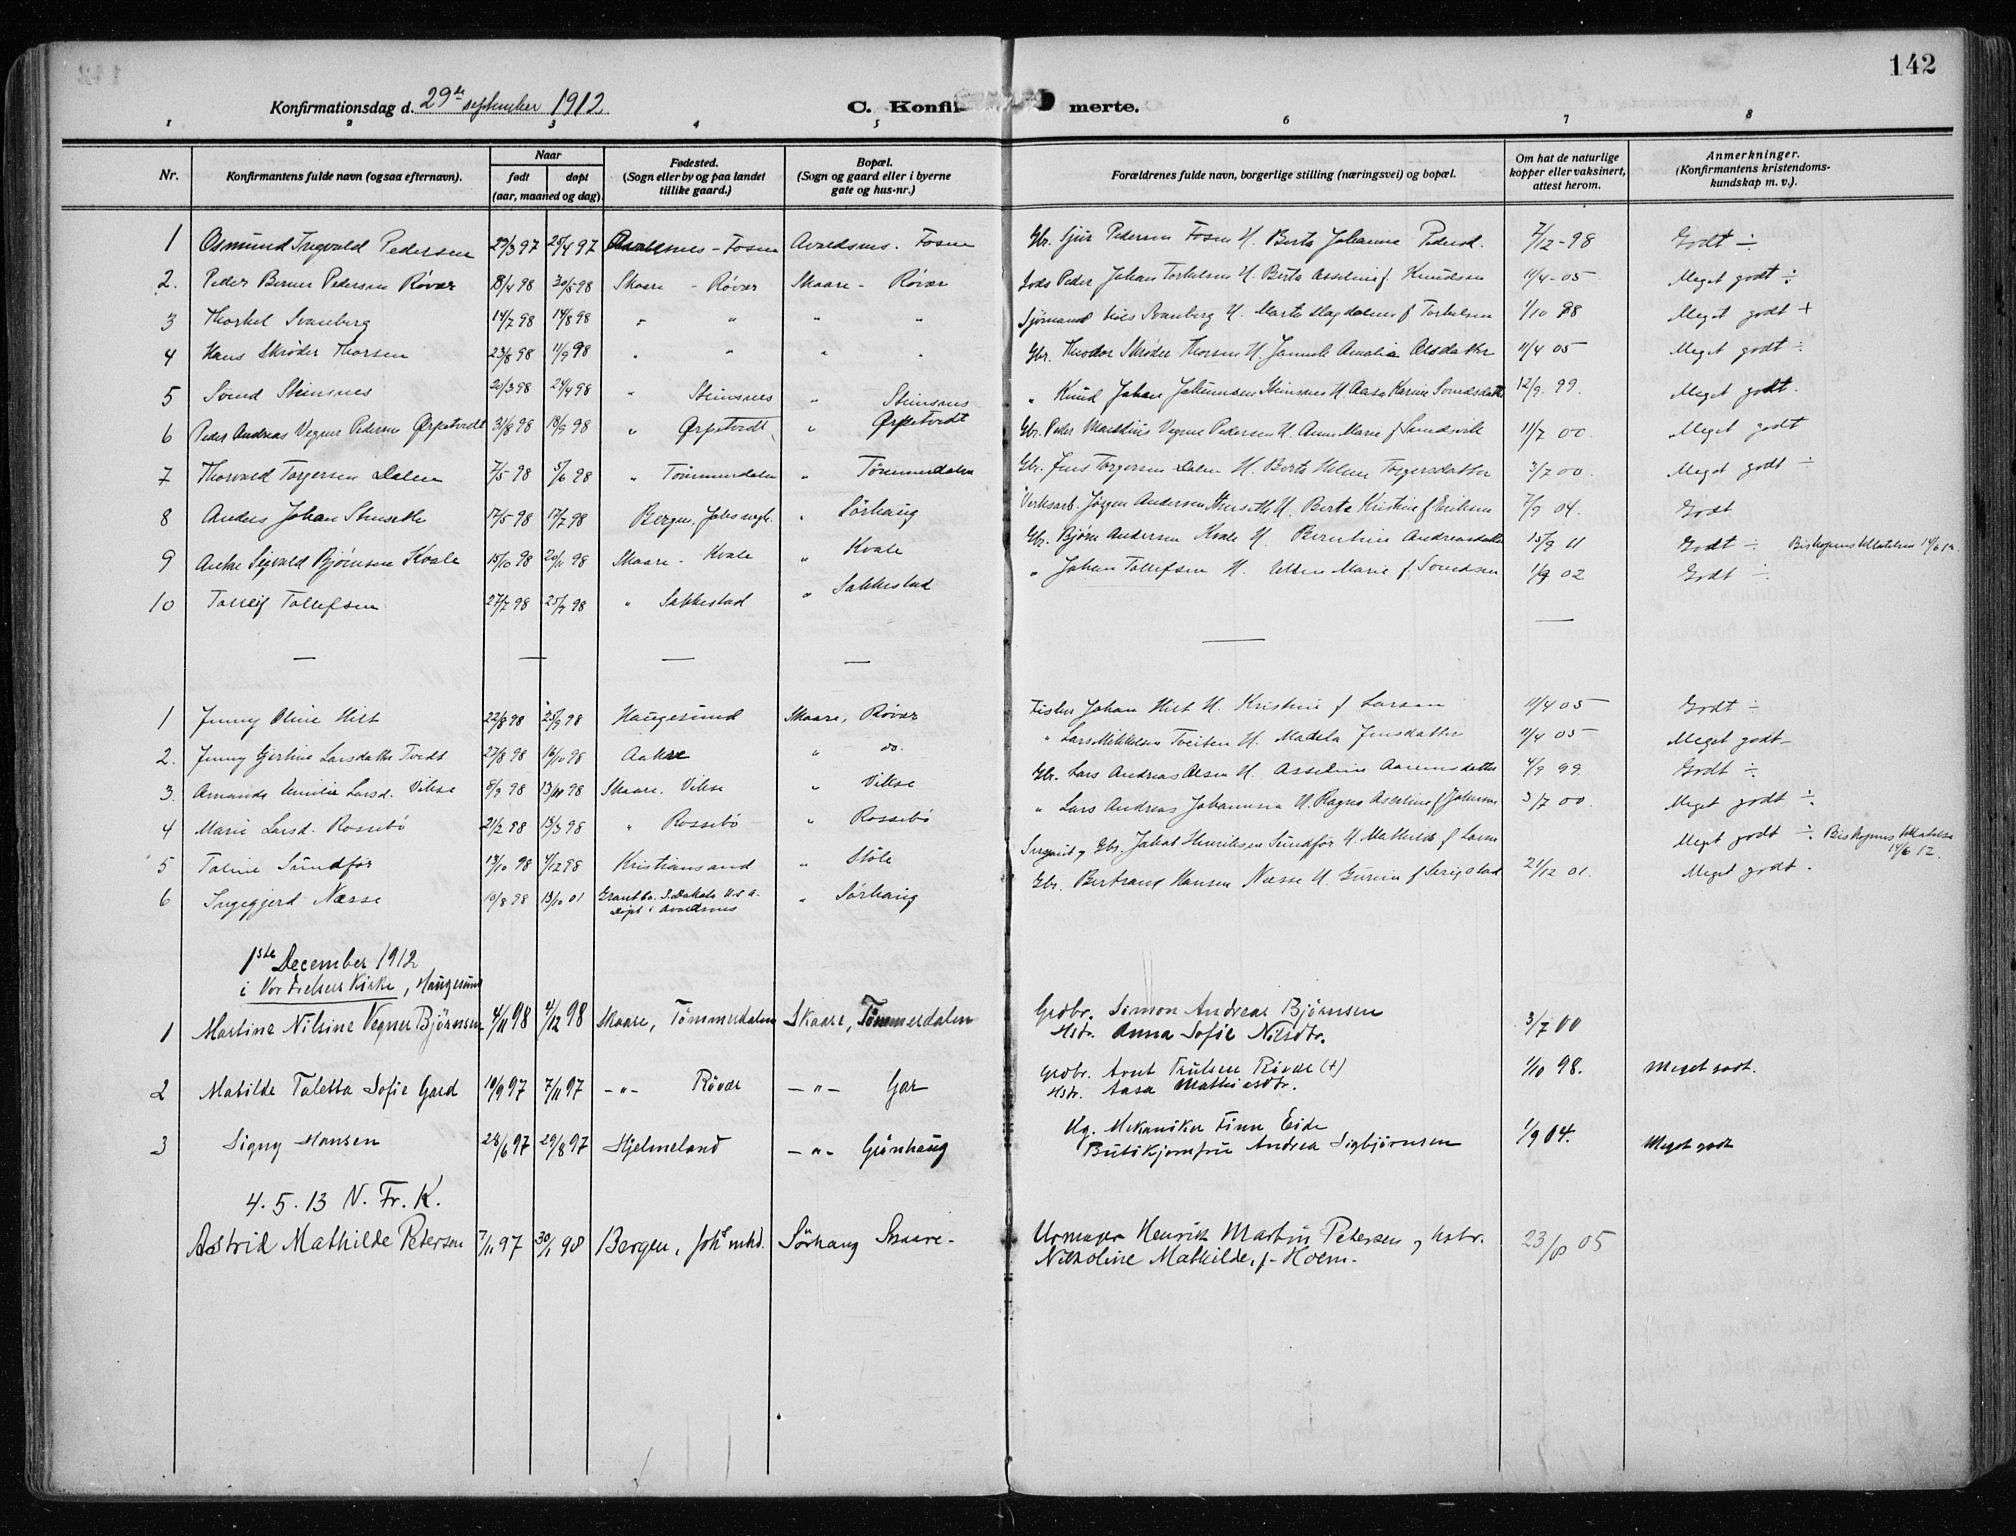 142
Konfirmationsdag d. 29de september 1912 C. Konfi merte.
1 2 3 4 5 6 7 8
Nr. Konfirmantens fulde navn (ogsaa efternavn). Naar født døpt (aar, maaned og dag). Fødested. (Sogn eller by og paa landet tillike gaard.) Bopæl. (Sogn og gaard eller i byerne gate og hus-nr.) Forældrenes fulde navn, borgerlige stilling (næringsvei) og bopæl. Om hat de naturlige kopper eller vaksinert, attest herom. Anmerkninger. (Konfirmantens kristendoms-kundskap m. v.).
1 Osmund Trygvald Pedersen 29/3 97 25/4 97 Avaldsnes - Fosen Avaldsnes. Fosen Gbr. Sjur Pedersen Fosen H. Berta Johanna Pedersd. 7/12 - 98 Godt ÷
2. Peder Berner Pedersen Røvær 18/4 98 30/5 98 Skaare - Røvær Skaare - Røvær Peder Johan Torkelsen H. Berta Asseline f. Knudsen 11/4 - 05 Meget godt ÷
3 Thorkel Svanberg 14/7 98 14/8 98 " " " " Sjømand Nils Svanberg H. Marta Magdalena f Torkelsen 1/10 98 Meget godt +
4 Hans Skrøder Thorsen 23/8 98 11/9 98 " " " " Gbr. Theodor Skrøder Thorsen H. Amalia Olsdatter 11/4 05 Meget godt ÷
5 Svend Steinsnes 20/3 98 24/4 98 " Steinsnes " Steinsnes " Knud Johan Johannesen Steinsnes H. Aasa Karine Svendsdatter 12/9. 99. Meget godt.
6 Peder Andreas Vegner Pedersen Ørpetvedt 31/8 98 18/9 98 " Ørpetvedt " Ørpetvedt Gbr. Peder Martinus Vegner Pedersen H. Anne Marie f Sundsvik 11/7 00. Meget godt
7 Thorvald Torgersen Dalen 7/5 98 5/6 98 " Tømmerdalen " Tømmerdalen Gbr. Jens Torgersen Dalen H. Berta Helene Torgersdatter 3/7 00. Meget godt ÷
8 Anders Johan Stenseth 17/5 98 17/7 98 Bergen, Johs " Sørhaug Verksarb. Jørgen Andersen Stenseth H. Berta Kristine f Eriksen 7/9 04. Godt
9 Sigvald Bjørnsen Kvale 15/10 98 20/11 98 Skaare - Kvale " Kvale Gbr. Bjørn Andersen Kvale H. Berentine Andreasdatter 15/9 11 Godt ÷ Biskopens tilladelse 14/6 12.
10 Torleif Tollefsen 27/7 98 25/9 98 " Sakkestad " Sakkestad " Johan Tollefsen H. Ellen Marie f. Svendsen 1/9 02 Godt ÷
— — — — — —
1 Jenny Oline Hilt 22/8 98 25/9 98 Haugesund Skaare, Røvær Fisker Johan Hilt H. Kristine f Larsen 11/4 05 Godt ÷
2. Jenny Gjertine Larsdatter Tvedt 27/8 98 16/10 98 Aakre " do. " Lars Mikkelsen Tveiten H. Madela Jensdatter 11/4 05 Meget godt
3. Amanda Emilie Larsd. Vikse 8/9 98 13/11 98 Skaare. Vikse " Vikse Gbr. Lars Andreas Olsen H. Asseline 4/9 99. Godt ÷
4 Marie Larsd. Rossebø 21/2 98 13/3 98 " Rossebø " Rossebø " Lars Andreas Johannesen H. Ragna Asseline f Johnsen 3/7 00. Meget godt ÷
5 Taline Sundfør 13/10 98 4/12 98 Kristiansand " Støle Sergeant og Gbr. Jakob Henriksen Sundfør H. Mathilde f Larsen Meget godt ÷. Biskopens tilladelse 14/6 12.
6 Ingegjerd Næsse 10/8 98 13/10 01 Grant Co. S. Dakota U.S.A. døpt i Avaldsnes " Sørhaug Gbr. Bertrand Hansen Næsse H. Gurine f Serigstad 21/12 01. Meget godt.
1ste December 1912
i Vor Frelsers Kirke, Haugesund
1 Martine Nilsine Vegner Bjørnsen 4/11 98 4/12 98 Skaare, Tømmerdalen Skaare, Tømmerdalen Grdbr. Simon Andreas Bjørnsen
Hstr. Anna Sofie Nilsdtr. 3/7 00
2 Matilde Taletta Sofie Gard 19/9 97 7/11 97 -"- Røvær -"- Gar Grdbr. Arnt Trulsen Røvær (+)
Hstr. Aasa Mathiasdtr. 1/10 98. Meget godt.
3 Signy Hansen 28/6 97 29/8 97 Hjelmeland -"- Grønhaug Ug. Mekaniker Finn Eide
Butikjomfru Andrea Sigbjørnsen 1/9 04. Meget godt
4.5.13 V. Fr. K.
Astrid Mathilde Petersen 7/11 97 30/1 98 Bergen, Johs mkd. Sørhaug Skaare - Urmager Henrik Martin Petersen og hstr. 23/8 05
Nikoline Mathilde, f. Holm.